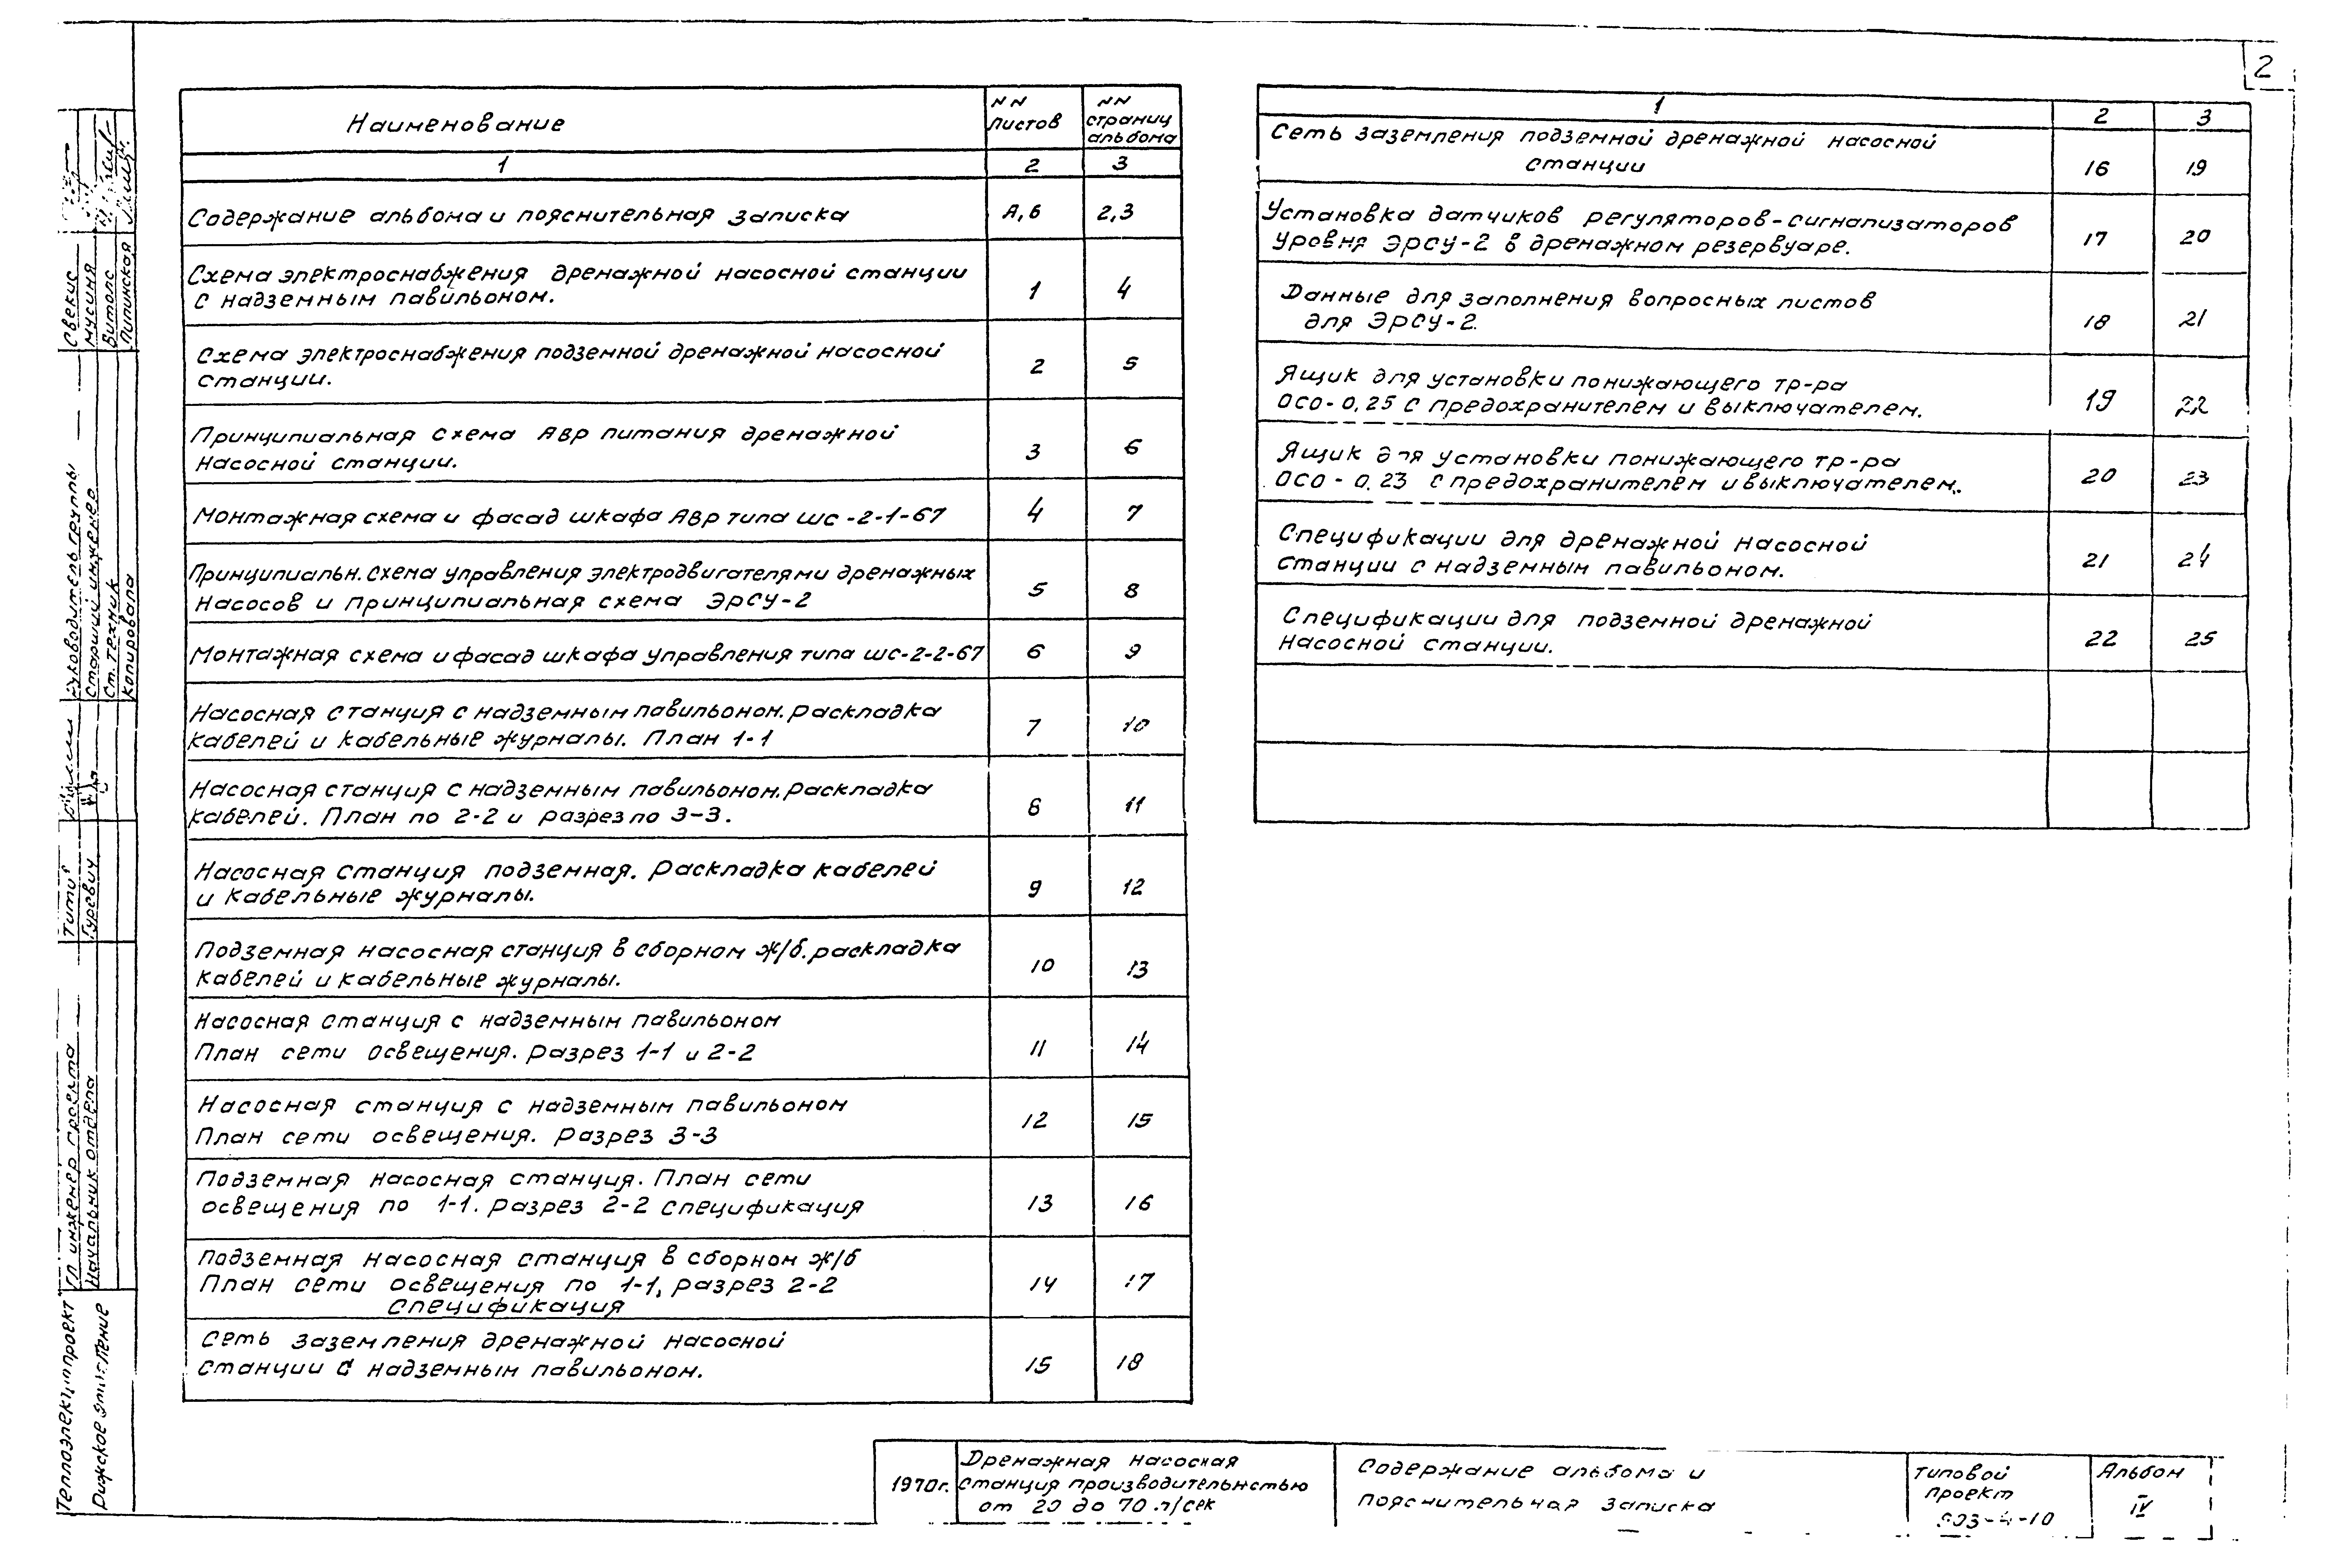 2
Наименование
NN листов
NN страниц альбома
1 2 3
Содержание альбома и пояснительная записка А,б 2,3
Схема электроснабжения дренажной насосной станции
с надземным павильоном. 1 4
Схема электроснабжения подземной дренажной насосной
станции. 2 5
Принципиальная схема АВР питания дренажной
насосной станции. 3 6
Монтажная схема и фасад шкафа АВР типа ШС-2-1-67 4 7
Принципиальн. схема управления электродвигателями дренажных
насосов и принципиальная схема ЭРСУ-2 5 8
Монтажная схема и фасад шкафа управления типа ШС-2-2-67 6 9
Насосная станция с надземным павильоном. Раскладка
кабелей и кабельные журналы. План 1-1 7 10
Насосная станция с надземным павильоном. Раскладка
кабелей. План по 2-2 и разрез по 3-3. 8 11
Насосная станция подземная. Раскладка кабелей
и кабельные журналы. 9 12
Подземная насосная станция в сборном ж/б. раскладка
кабелей и кабельные журналы. 10 13
Насосная станция с надземным павильоном
План сети освещения. Разрез 1-1 и 2-2 11 14
Насосная станция с надземным павильоном
План сети освещения. Разрез 3-3 12 15
Подземная насосная станция. План сети
освещения по 1-1. Разрез 2-2 спецификация 13 16
Подземная насосная станция в сборном ж/б
План сети освещения по 1-1, разрез 2-2 14 17
Спецификация
Сеть заземления дренажной насосной
станции с надземным павильоном. 15 18
1 2 3
Сеть заземления подземной дренажной насосной
станции 16 19
Установка датчиков регуляторов-сигнализаторов
уровня ЭРСУ-2 в дренажном резервуаре. 17 20
Данные для заполнения вопросных листов
для ЭРСУ-2. 18 21
Ящик для установки понижающего тр-ра
ОСО-0,25 с предохранителем и выключателем. 19 22
Ящик для установки понижающего тр-ра
ОСО-0.23 с предохранителем и выключателем. 20 23
Спецификации для дренажной насосной
станции с надземным павильоном. 21 24
Спецификации для подземной дренажной
насосной станции. 22 25
Теплоэлектропроект
Рижское отделение
Гл инженер проекта
Начальник отдела
Титов
Гуревич
Руководитель группы
Старший инженер
Ст. техник
Копировала
Свекис
Мусиня
Витолс
Липинская
1970г.
Дренажная насосная
станция производительностью
от 20 до 70 л/сек
Содержание альбома и
пояснительная записка
Типовой
проект
903-4-10
Альбом
IV